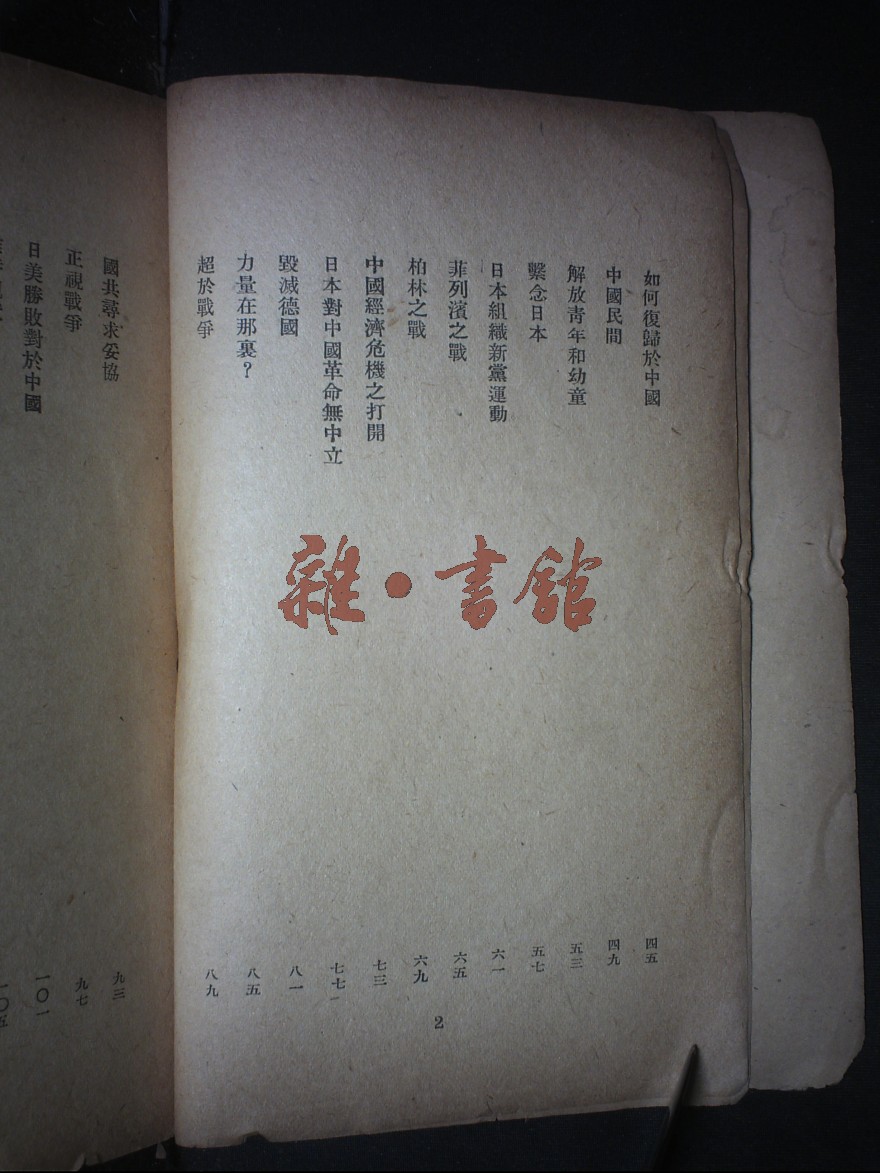 如何復歸於中國 四五
中國民間 四九
解放靑年和幼童 五三
繫念日本 五七
日本組織新黨運動 六一
菲列濱之戰 六五
柏林之戰 六九
中國經濟危機之打開 七三
日本對中國革命無中立 七七
毀滅德國 八一
力量在那裏？ 八五
超於戰爭 八九
2
國共尋求妥協 九三
正視戰爭 九七
日美勝敗對於中國 一〇一
一〇五
雜·書館